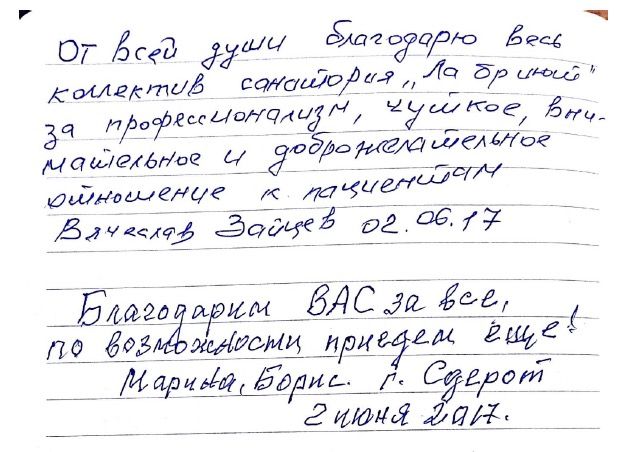 От всей души благодарю весь
коллектив санатория „Ла бриют"
за профессионализм, чуткое, вни-
мательное и доброжелательное
отношение к пациентам
Вячеслав Зайцев 02.06.17
Благодарим ВАС за все,
по возможности приедем еще!
Марина, Борис. г. Сдерот
2 июня 2017.